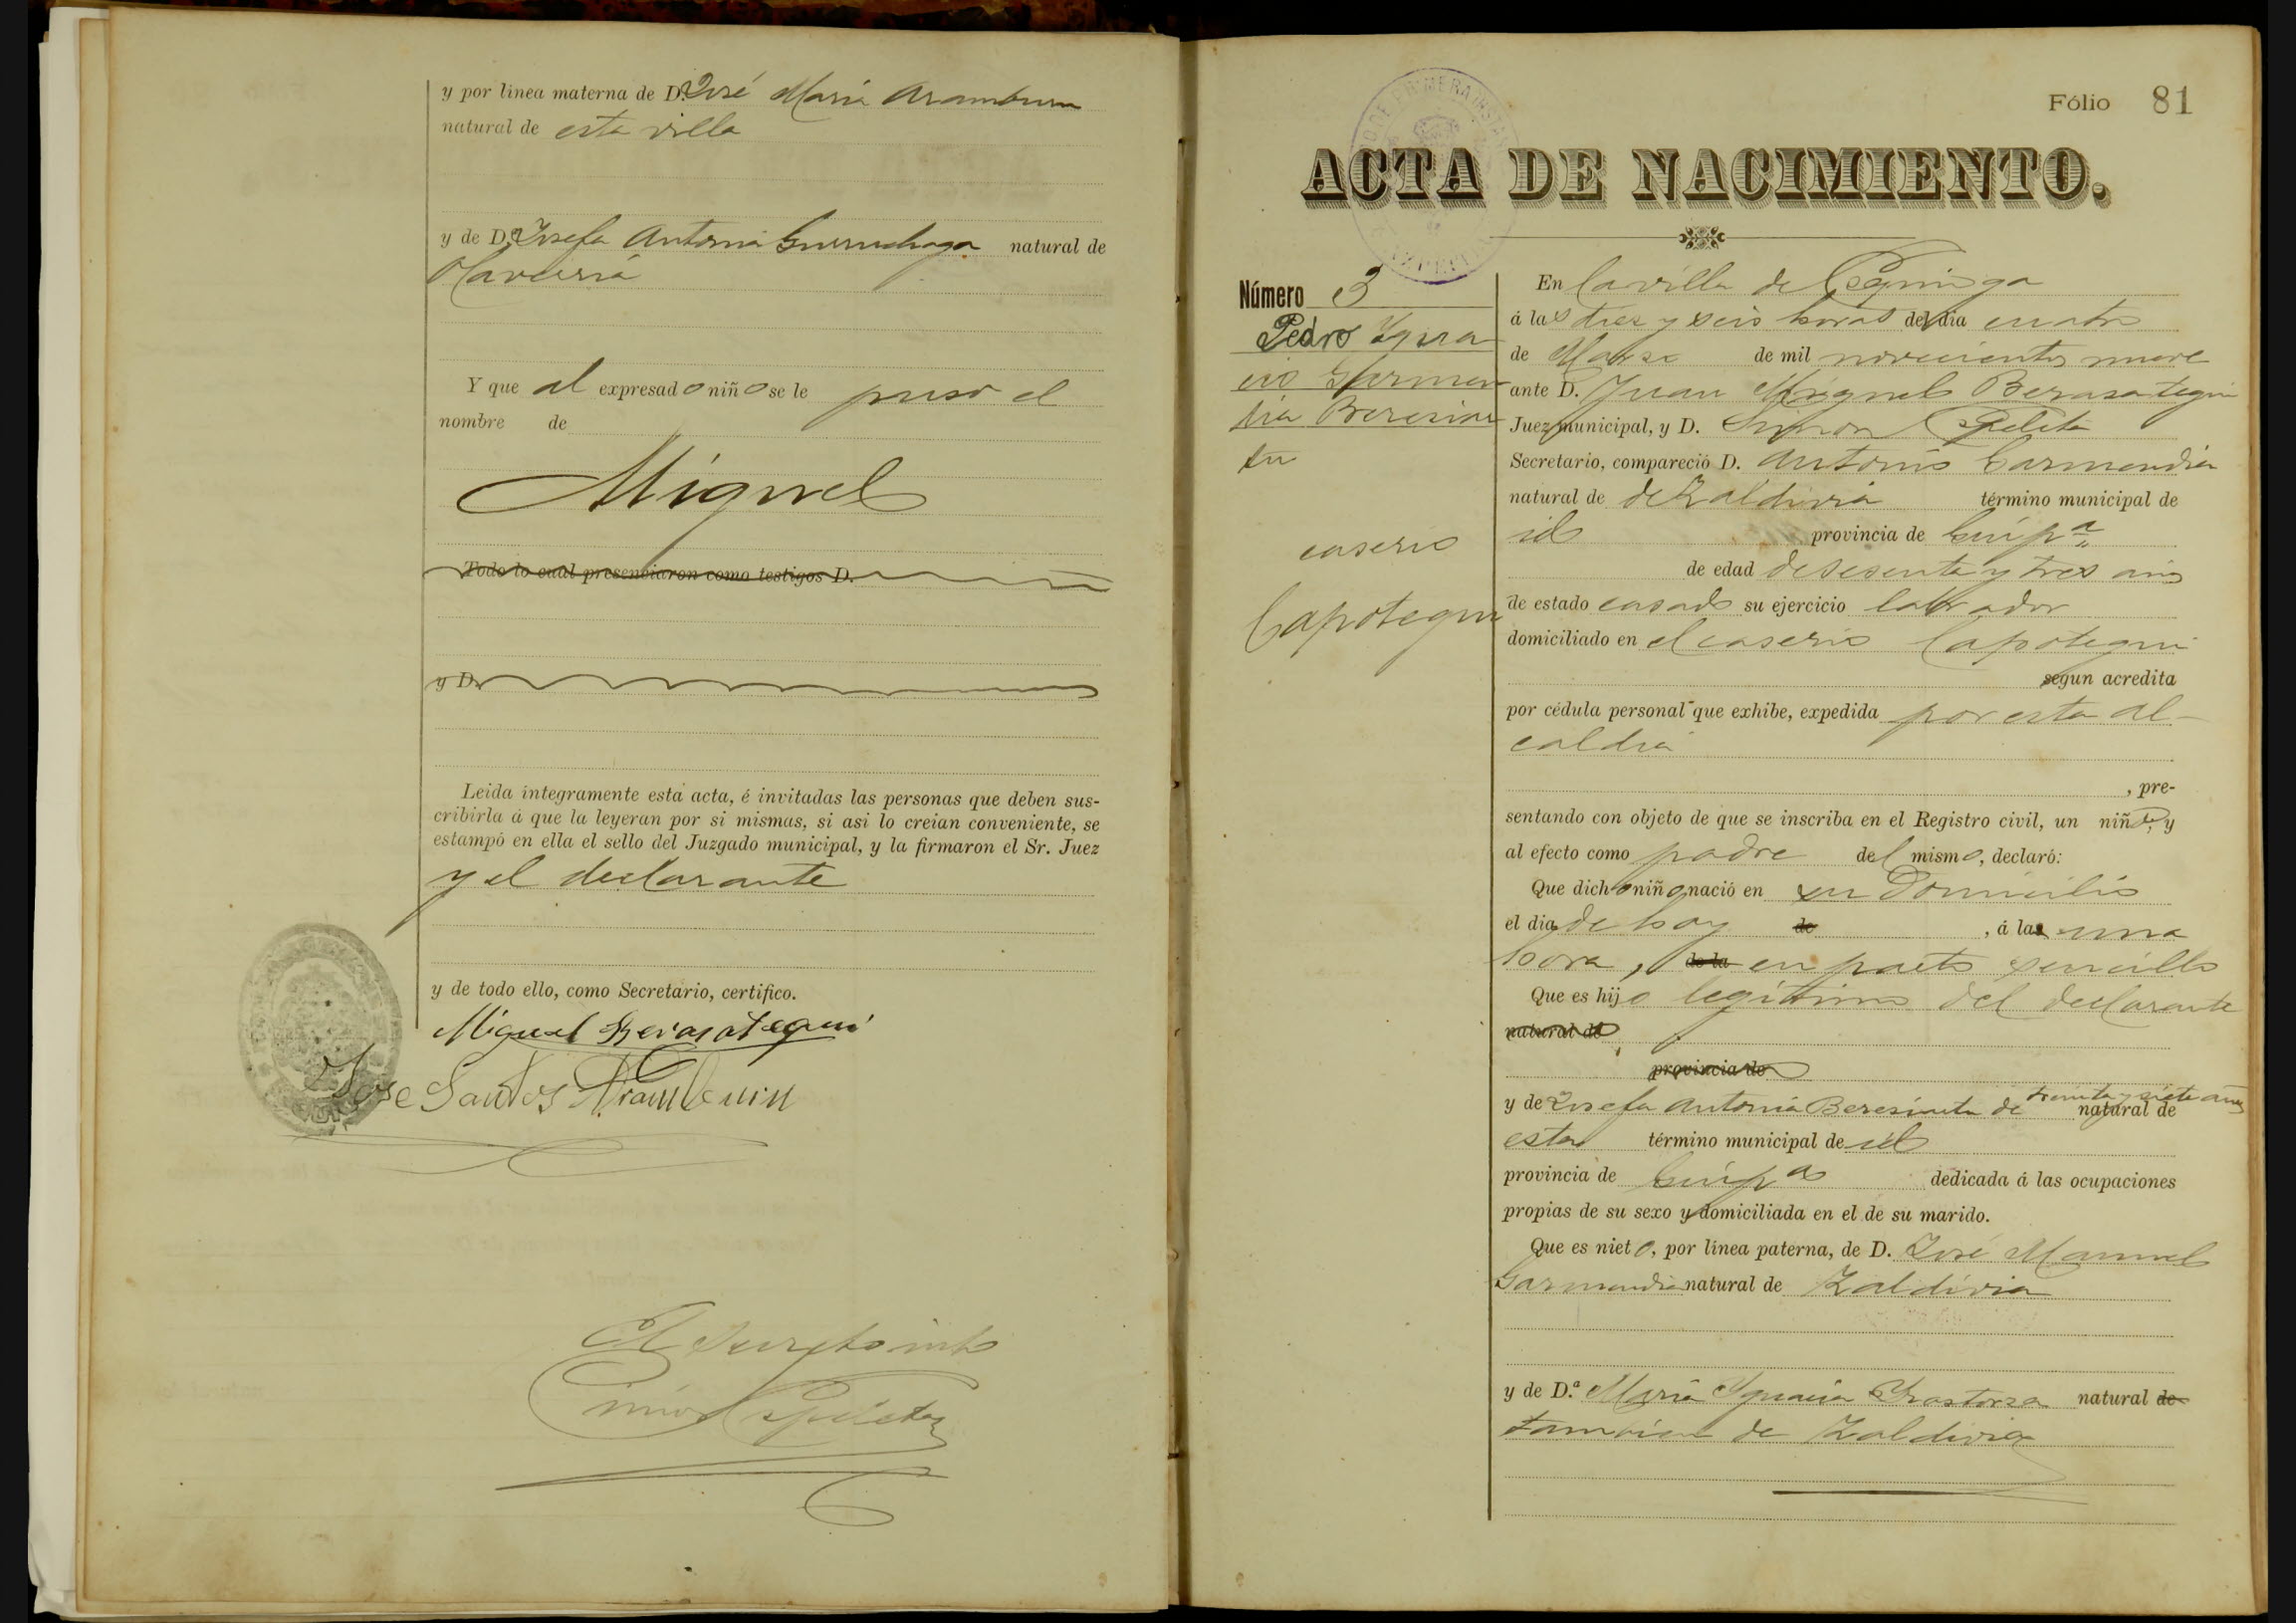 y por línea materna de D. José María Aramburu
natural de esta villa
y de D.ª Josefa Antonia Gurruchaga natural de
Olaverría
Y que al expresado niño se le puso el
nombre de
Miguel
Todo lo cual presenciaron como testigos D.
y D.
Leida íntegramente esta acta, é invitadas las personas que deben sus-
cribirla á que la leyeran por si mismas, si asi lo creian conveniente, se
estampó en ella el sello del Juzgado municipal, y la firmaron el Sr. Juez
y el declarante
y de todo ello, como Secretario, certifico.
Miguel Berasategui
José Santos Aramburu
El Secretario
Simón Espeleta
Fólio 81
ACTA DE NACIMIENTO.
Número 3
Pedro Ygna
cio Garmen
dia Beresiar
tu
caserio
Capotegui
En la villa de Cegama
á las diez y seis horas del dia cuatro
de Marzo de mil novecientos nueve
ante D. Juan Miguel Berasategui
Juez municipal, y D. Simon Espeleta
Secretario, compareció D. Antonio Garmendia
natural de de Zaldivia término municipal de
id provincia de Guipª
de edad de sesenta y tres años
de estado casado su ejercicio labrador
domiciliado en el caserio Capotegui
segun acredita
por cédula personal que exhibe, expedida por esta al-
caldia
, pre-
sentando con objeto de que se inscriba en el Registro civil, un niño, y
al efecto como padre del mismo, declaró:
Que dicho niño nació en su Domicilio
el dia de hoy de , á las una
hora, de la en parto sencillo
Que es hijo legítimo del declarante
natural de
provincia de
y de Josefa Antonia de treinta y siete años natural de
esta término municipal de id
provincia de Guipª dedicada á las ocupaciones
propias de su sexo y domiciliada en el de su marido.
Que es nieto, por línea paterna, de D. José Manuel
Garmendia natural de Zaldivia
y de D.ª María Ygnacia Yrastorza natural de
tambien de Zaldivia